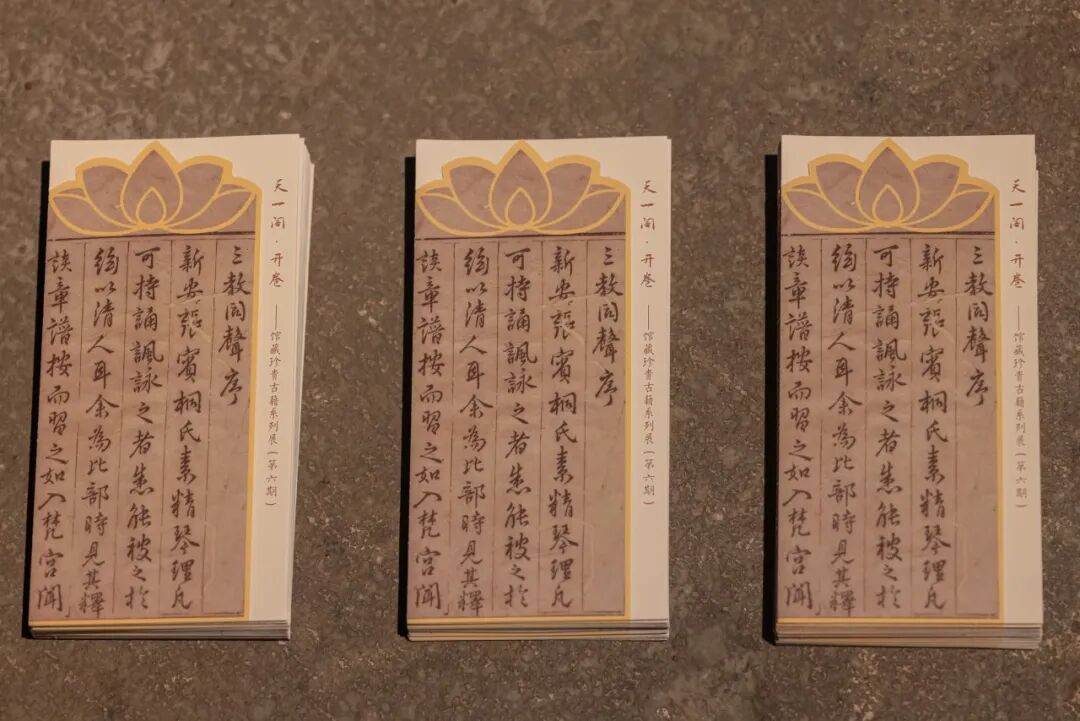 天一阁·开卷 ——馆藏珍贵古籍系列展(第六期)
三教同聲序
新安張賓桐氏素精琴理凡
可持誦諷詠之者悉能被之於
絃以清人耳余為比部時見其釋
談章譜按而習之如入梵宮聞
天一阁·开卷 ——馆藏珍贵古籍系列展(第六期)
三教同聲序
新安張賓桐氏素精琴理凡
可持誦諷詠之者悉能被之於
絃以清人耳余為比部時見其釋
談章譜按而習之如入梵宮聞
天一阁·开卷 ——馆藏珍贵古籍系列展(第六期)
三教同聲序
新安張賓桐氏素精琴理凡
可持誦諷詠之者悉能被之於
絃以清人耳余為比部時見其釋
談章譜按而習之如入梵宮聞